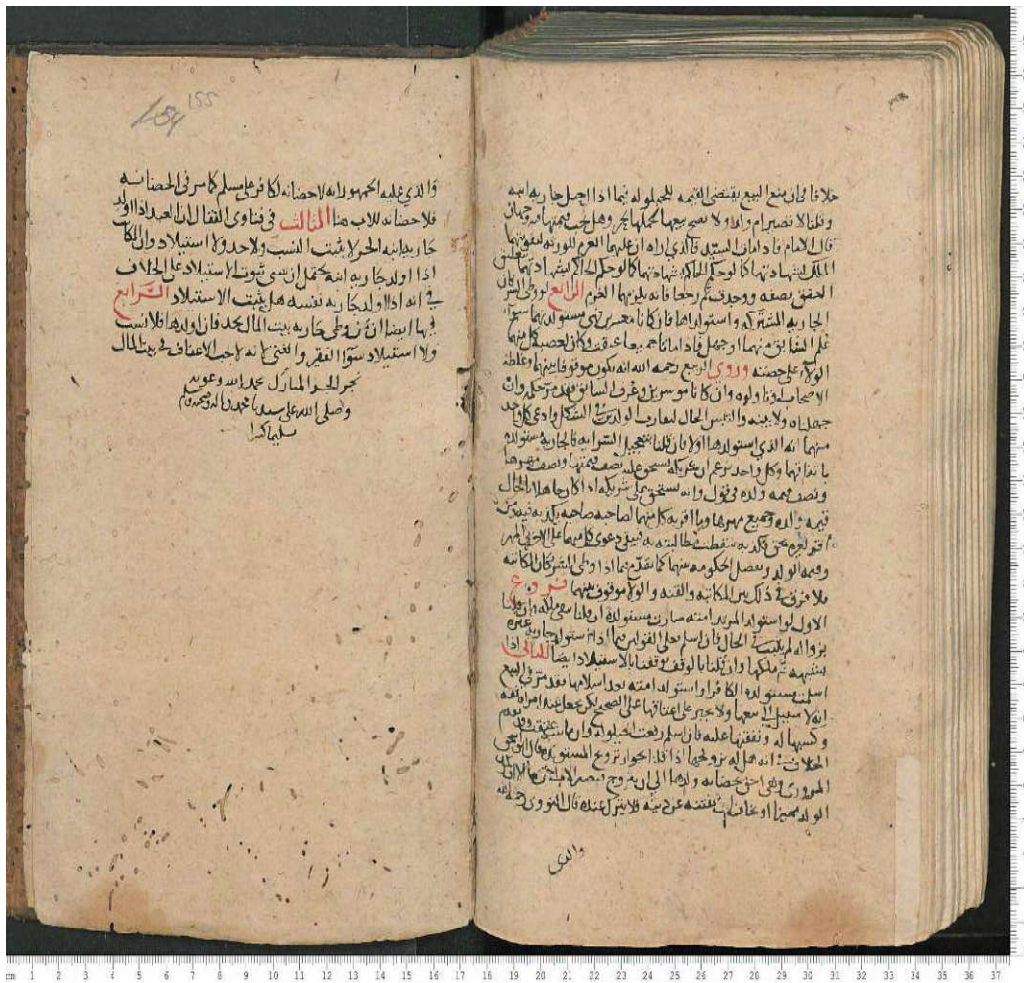 خلافا في ان منع البيع يقتضي القيمه للحيلوله فيما اذا احبل جاريه ابنه
وقلنا لا تصير ام ولد ولا يصح بيعها لحملها بحر وهل يجب قيمتها فيه وجهان
قال الامام فاذا مات السيد فالذي اراه ان عليهما الغرم للورثه
الملك بشهادتهما كما لو حكم الحاكم بشهادتهما
العتق بصفه ووجدت ثم رجعا فانه يلزمهما الغرم الرابع لو وطى الشريكان
الجاريه المشتركه واستولداها فان كانا معسرين فهي مستولدتهما سوا
علم السابق منهما او جهل فاذا ماتا جميعا عتقت وكان لعصبه كل منهما
الولاء على حصته وروى الربيع رحمه الله انه يكون موقوفا بينهما وغلطه
الاصحاب او تاولوه وان كانا موسرين وعرف السابق فقد مر حكمه وان
جهلناه ولا بينه والتبس الحال لتقارب الولدين في الشكل وادعى كل واحد
منهما انه الذي استولدها اولا فان قلنا بتعجيل السرايه فالجاريه مستولده
باتفاقهما وكل واحد يزعم ان شريكه يستحق عليه نصف قيمتها ونصف مهرها
ونصف قيمه ولده في قول وانه يستحق على شريكه اذا كان جاهلا بالحال
قيمه ولده وجميع مهرها وما اقر به كل منهما لصاحبه صاحبه يكذبه فيه ومن
اقر لغيره بحق فكذبه سقطت مطالبته به فيبقى دعوى كل منهما على الاخر المهر
وقيمه الولد وتفصل الحكومه بينهما كما تقدم فيما اذا وطى الشريكان المكاتبه
فلا فرق في ذلك بين المكاتبه والقنه والولا موقوف بينهما فروع
الاول لو استولد المرتد امته صارت مستولده ان قلنا ببقى ملكه وان قلنا
بزواله لم يثبت في الحال فان اسلم فعلى القولين فيما اذا استولد جاريه غيره
بشبهه ثم ملكها وان قلنا بالوقف توقفنا بالاستيلاد ايضا الثاني اذا
اسلمت مستولده الكافر او استولد امته بعد اسلامها فقد مر في البيع
انه لا سبيل الى بيعها ولا يجبر على اعتاقها على الصحيح لكن يجعل عند امراه ثقه
وكسبها له ونفقتها عليه فان اسلم رفعت الحيلوله وان مات عتقت وقد تقدم
الخلاف في انه هل له تزويجها اذا قلنا بجواز تزويج المستولده قال ابو اسحق
المروزي وهي احق بحضانه ولدها الى ان يتزوج فيصير الاب احق
الولد مميزا او يخاف ان يفتنه عن دينه فلا يترك عنده قال النووي رحمه الله
والذي
155
154
والذي عليه الجمهور انه لا حضانه لكافر على مسلم كما مر في الحضانه
فلا حضانه للاب هنا الثالث في فتاوى القفال ان العبد اذا اولد
جاريه ابنه الحر لا يثبت النسب ولا حد ولا استيلاد وان المكاتب
اذا اولد جاريه ابنه يحتمل ان يبنى ثبوت الاستيلاد على الخلاف
في انه اذا اولد جاريه نفسه هل يثبت الاستيلاد الرابع
فيها ايضا ان من وطى جاريه بيت المال يحد فان اولدها فلا نسب
ولا استيلاد سوا الفقير والغني لانه لا يجب الاعفاف في بيت المال
نجز الجز المبارك بحمد الله وعونه
وصلى الله على سيدنا محمد واله وصحبه وسلم
تسليما كثيرا